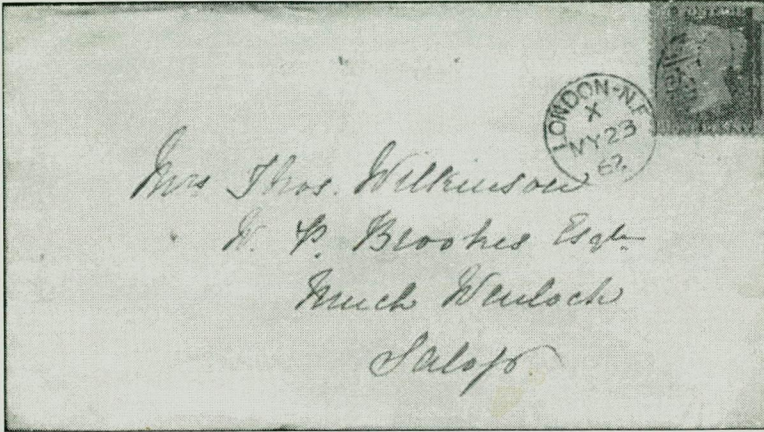 LONDON-N.E
X
MY 23
62
Mrs Thos. Wilkinson
W. P. Brookes Esqre
Much Wenlock
Salop.